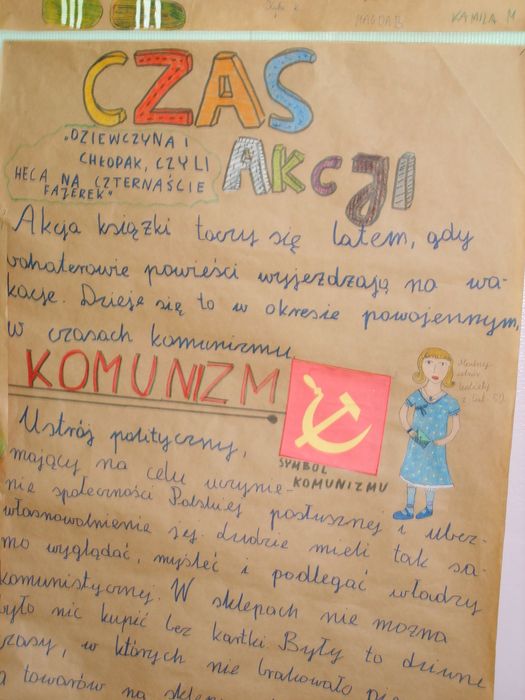 MAGDA B
KAMILA M
CZAS
AKCJI
„DZIEWCZYNA I
CHŁOPAK, CZYLI
HECA NA CZTERNAŚCIE
FAJEREK"
Akcja książki toczy się latem, gdy
bohaterowie powieści wyjeżdzają na wa-
kacje. Dzieje się to w okresie powojennym,
w czasach komunizmu.
KOMUNIZM
SYMBOL
KOMUNIZMU
Ustrój polityczny,
mający na celu uczynie-
nie społeczności Polskiej posłusznej i ubez-
własnowolnienie jej. Ludzie mieli tak sa-
mo wyglądać, myśleć i podlegać władzy
komunistycznej. W sklepach nie można
było nic kupić bez kartki. Były to dziwne
czasy, w których nie brakowało
towarów na